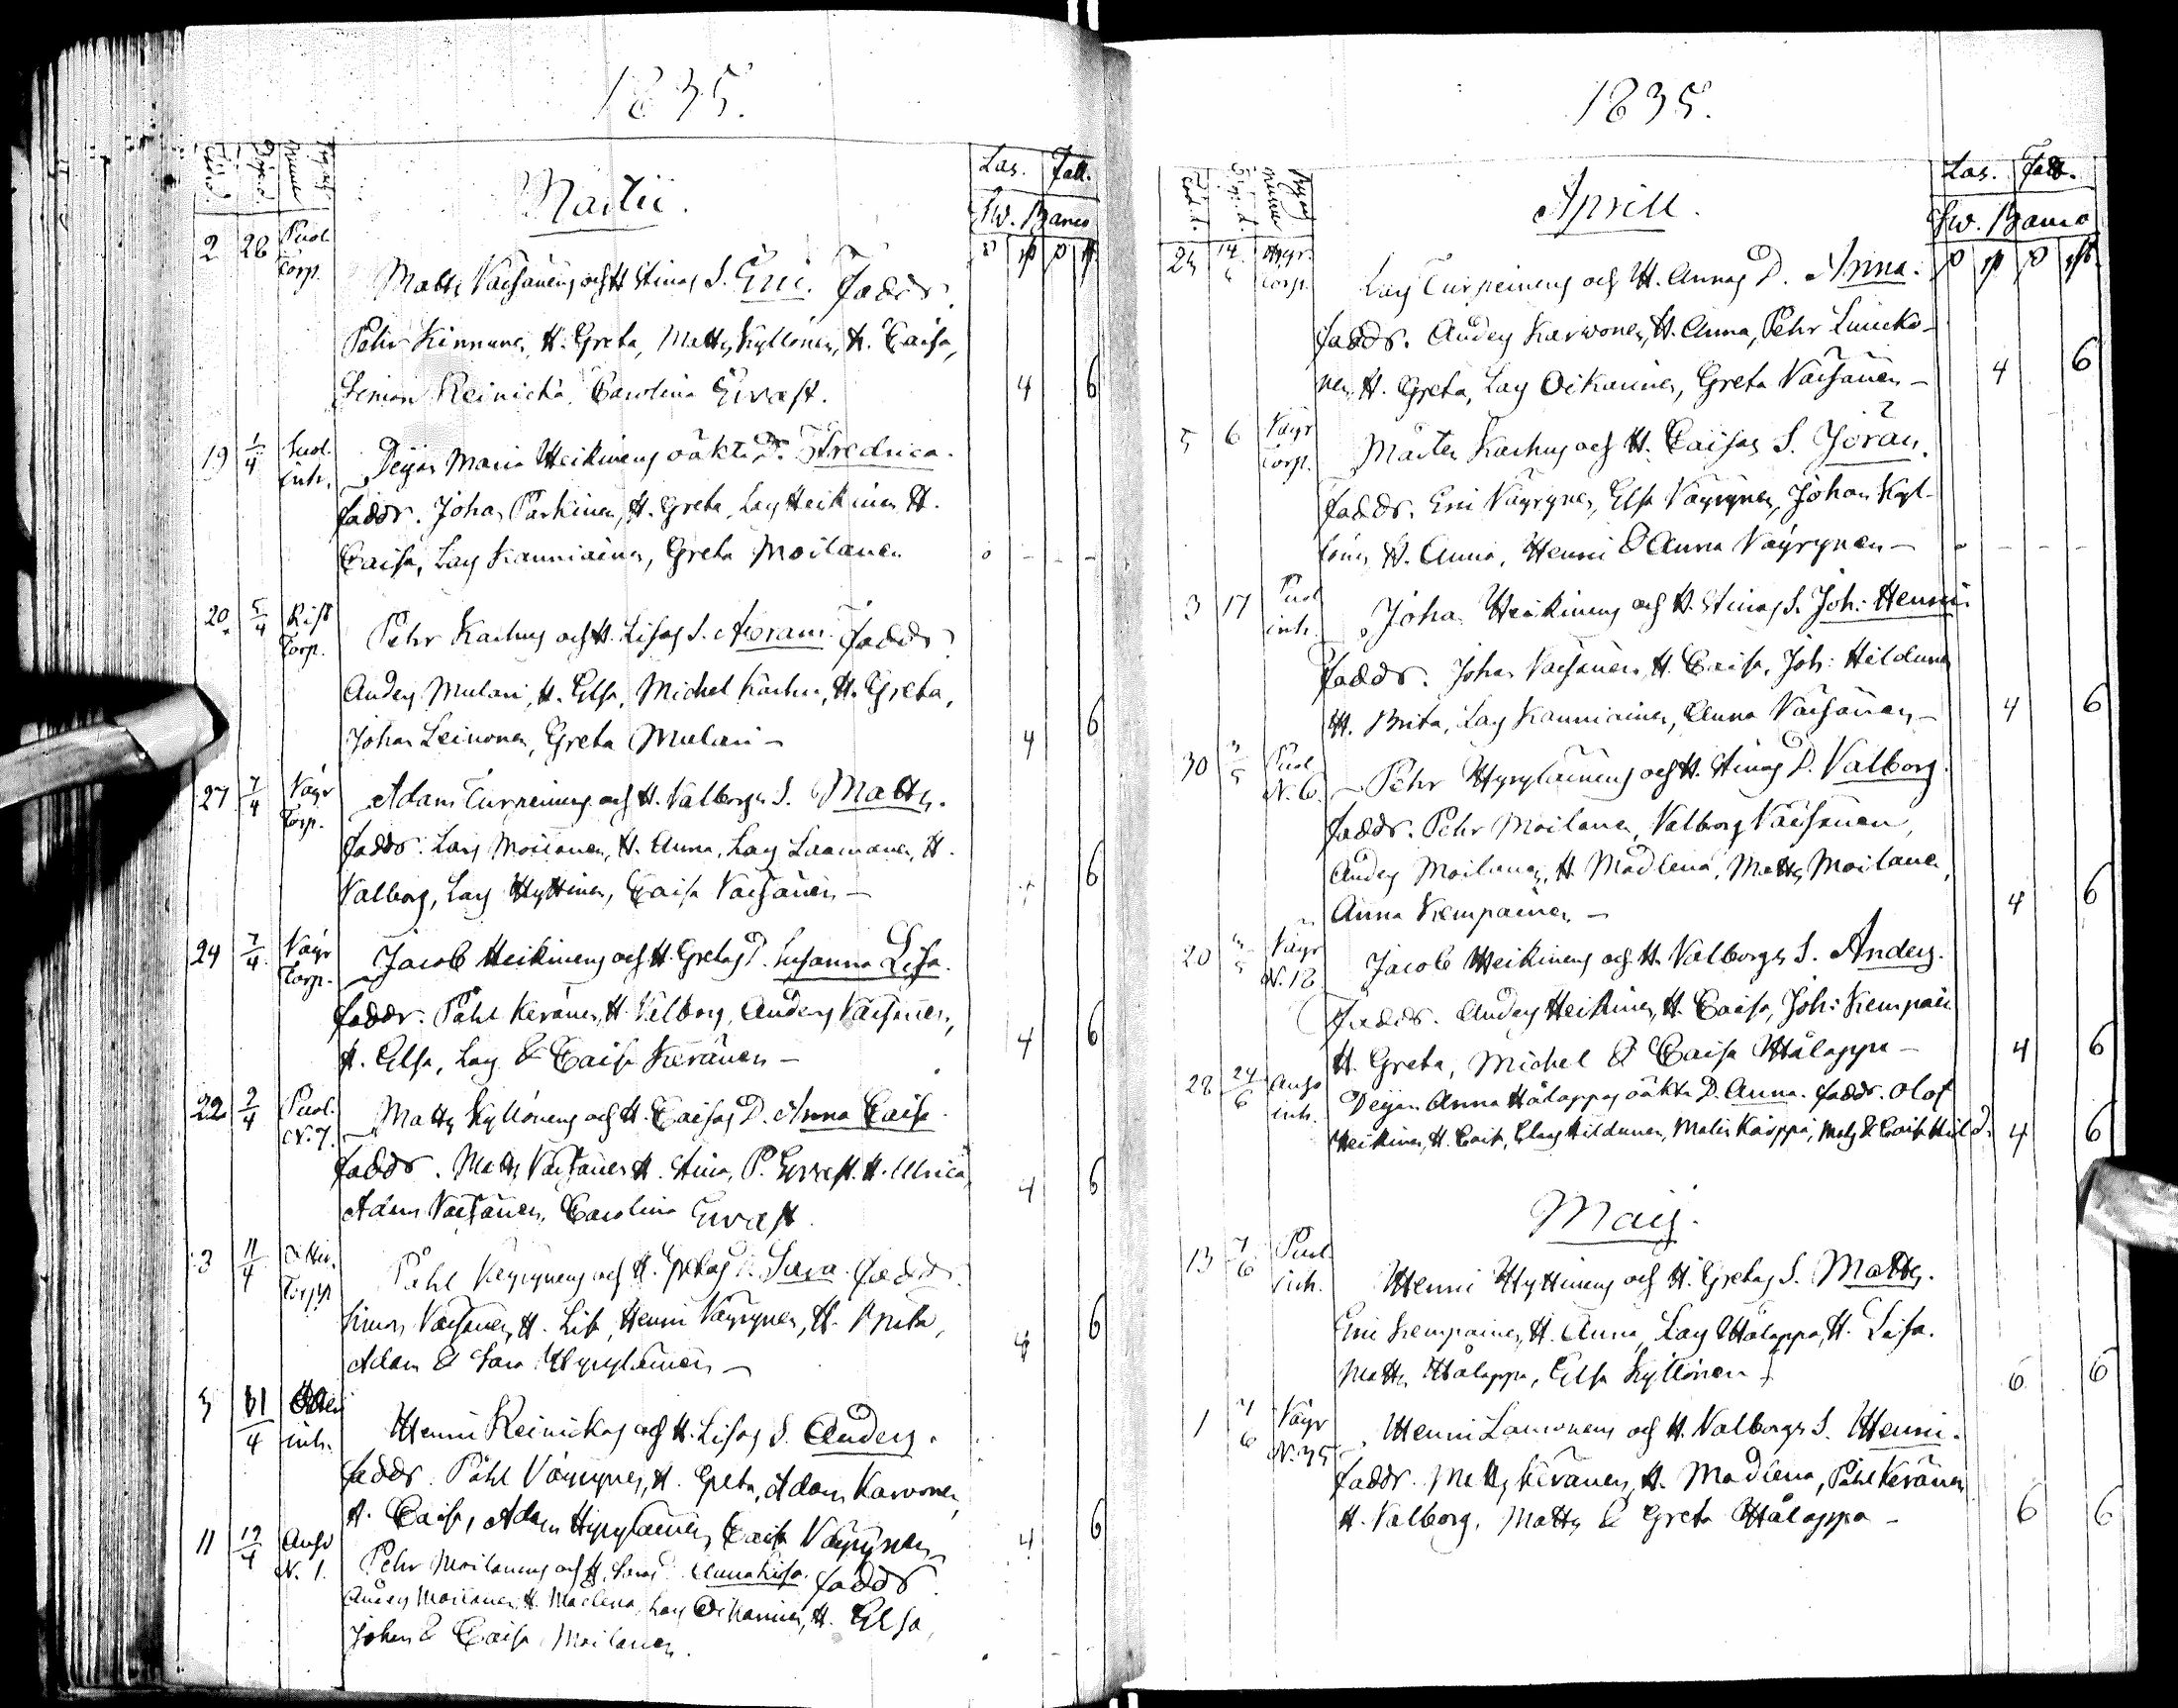 1835.
Martii.
Las. Fall.
Sw. Banco
2 28 Puol. Torp. Matts Väisänens och H. Stinas S. Eric. Faddr.
Pehr Kinnunen, H. Greta, Matts Kyllönen, H. Caisa,
Simon Reinickä, Carolina Ervast. 4 6
19 1/4 Suol. inh. Pigan Maria Heikinens oäkta D. Fredrica.
faddr. Johan Parkinen, H. Greta, Lars Heikinen H.
Caisa, Lars Kanniainen, Greta Moilanen
20 5/4 Rist Torp. Pehr Karhus och H. Lisas S. Abram. Faddr
Anders Mulari, H. Elsa, Michel Karhu, H. Greta,
Johan Leinonen, Greta Mulari – 4 6
27 7/4 Väyr Torp. Adam Turpeinens och H. Valborgs S. Matts.
faddr. Lars Moilanen, H. Anna, Lars Laamanen, H.
Valborg, Lars Hyttinen, Caisa Väisänen – 6
24 7/4 Väyr Torp. Jacob Heikinens och H. Gretas D. Susanna Lisa.
faddr. Påhl Keränen, H. Valborg, Anders Väisänen,
H. Elsa, Lars & Caisa Keränen – 4 6
22 2/4 Puol. N. 7. Matts Kyllönens och H. Caisas D. Anna Caisa
faddr. Matts Väisänen H. Stina, P. Ervast. H. Ulrica,
Adam Väisänen, Carolina Ervast 4 6
3 11/4 Torp. Påhl Väyrynens och H. Gretas D. Sara. faddr.
Simon Väisänen, H. Lisa, Henric Väyrynen, H. Brita,
Adam & Sara Hyryläinen – 4 6
5 11/4 inh. Henric Reinickäs och H. Lisas S. Anders.
faddr. Påhl Väyrynen, H. Greta, Adam Karvonen,
H. Caisa, Adam Hyryläinen, Caisa Väyrynen 4 6
11 12/4 N. 1. Pehr Moilanens och H. Saras D. Anna Lisa. faddr.
Anders Moilanen H. Madlena, Lars Oikarinen, H. Elsa,
Johan & Caisa Moilanen.
1835.
Aprill.
Las. Fall.
Sw. Banco
Torp. Lars Turpeinens och H. Annas D. Anna.
faddr. Anders Karvonen, H. Anna, Pehr Lucko-
nen, H. Greta, Lars Oikarinen, Greta Väisänen – 4 6
5 6 Väyr Torp. Mårten Karhus och H. Caisas S. Jöran.
faddr. Eric Väyrynen, Elsa Väyrynen, Johan Kyl-
lönen H. Anna, Henric & Anna Väyrynen –
3 17 Puol inh. Johan Heikinens och H. Stinas S. Joh: Henric
faddr. Johan Väisänen, H. Caisa, Joh: Hildunen
H. Brita, Lars Kanniainen, Anna Väisänen – 4 6
30 3/5 Puol N. 6. Pehr Hyryläinens och H. Stinas D. Valborg.
faddr. Pehr Moilanen, Valborg Väisänen,
Anders Moilanen, H. Madlena, Matts Moilanen,
Anna Kempainen – 4 6
20 3/5 Väyr N. 12 Jacob Heikinens och H. Valborgs S. Anders.
Faddr. Anders Heikinen, H. Caisa, Joh: Kempain
H. Greta, Michel & Caisa Hålappa – 4 6
28 24/6 inh. Pigan Anna Hålappas oäkta D. Anna. faddr. Olof
Heikinen, H. Caisa, Clas Hildunen, Malin Karppi, Mats & Caisa Hild. 4 6
Maij.
13 7/6 Puol inh. Henric Hyttinens och H. Gretas S. Matts.
Eric Kempainen, H. Anna, Lars Hålappa, H. Lisa.
Matts Hålappa, Elsa Kyllönen – 6 6
1 7/6 Väyr N. 35 Henric Lamonens och H. Valborgs S. Henric.
faddr. Matts Keränen, H. Madlena, Påhl Keränen
H. Valborg, Matts & Greta Hålappa – 6 6